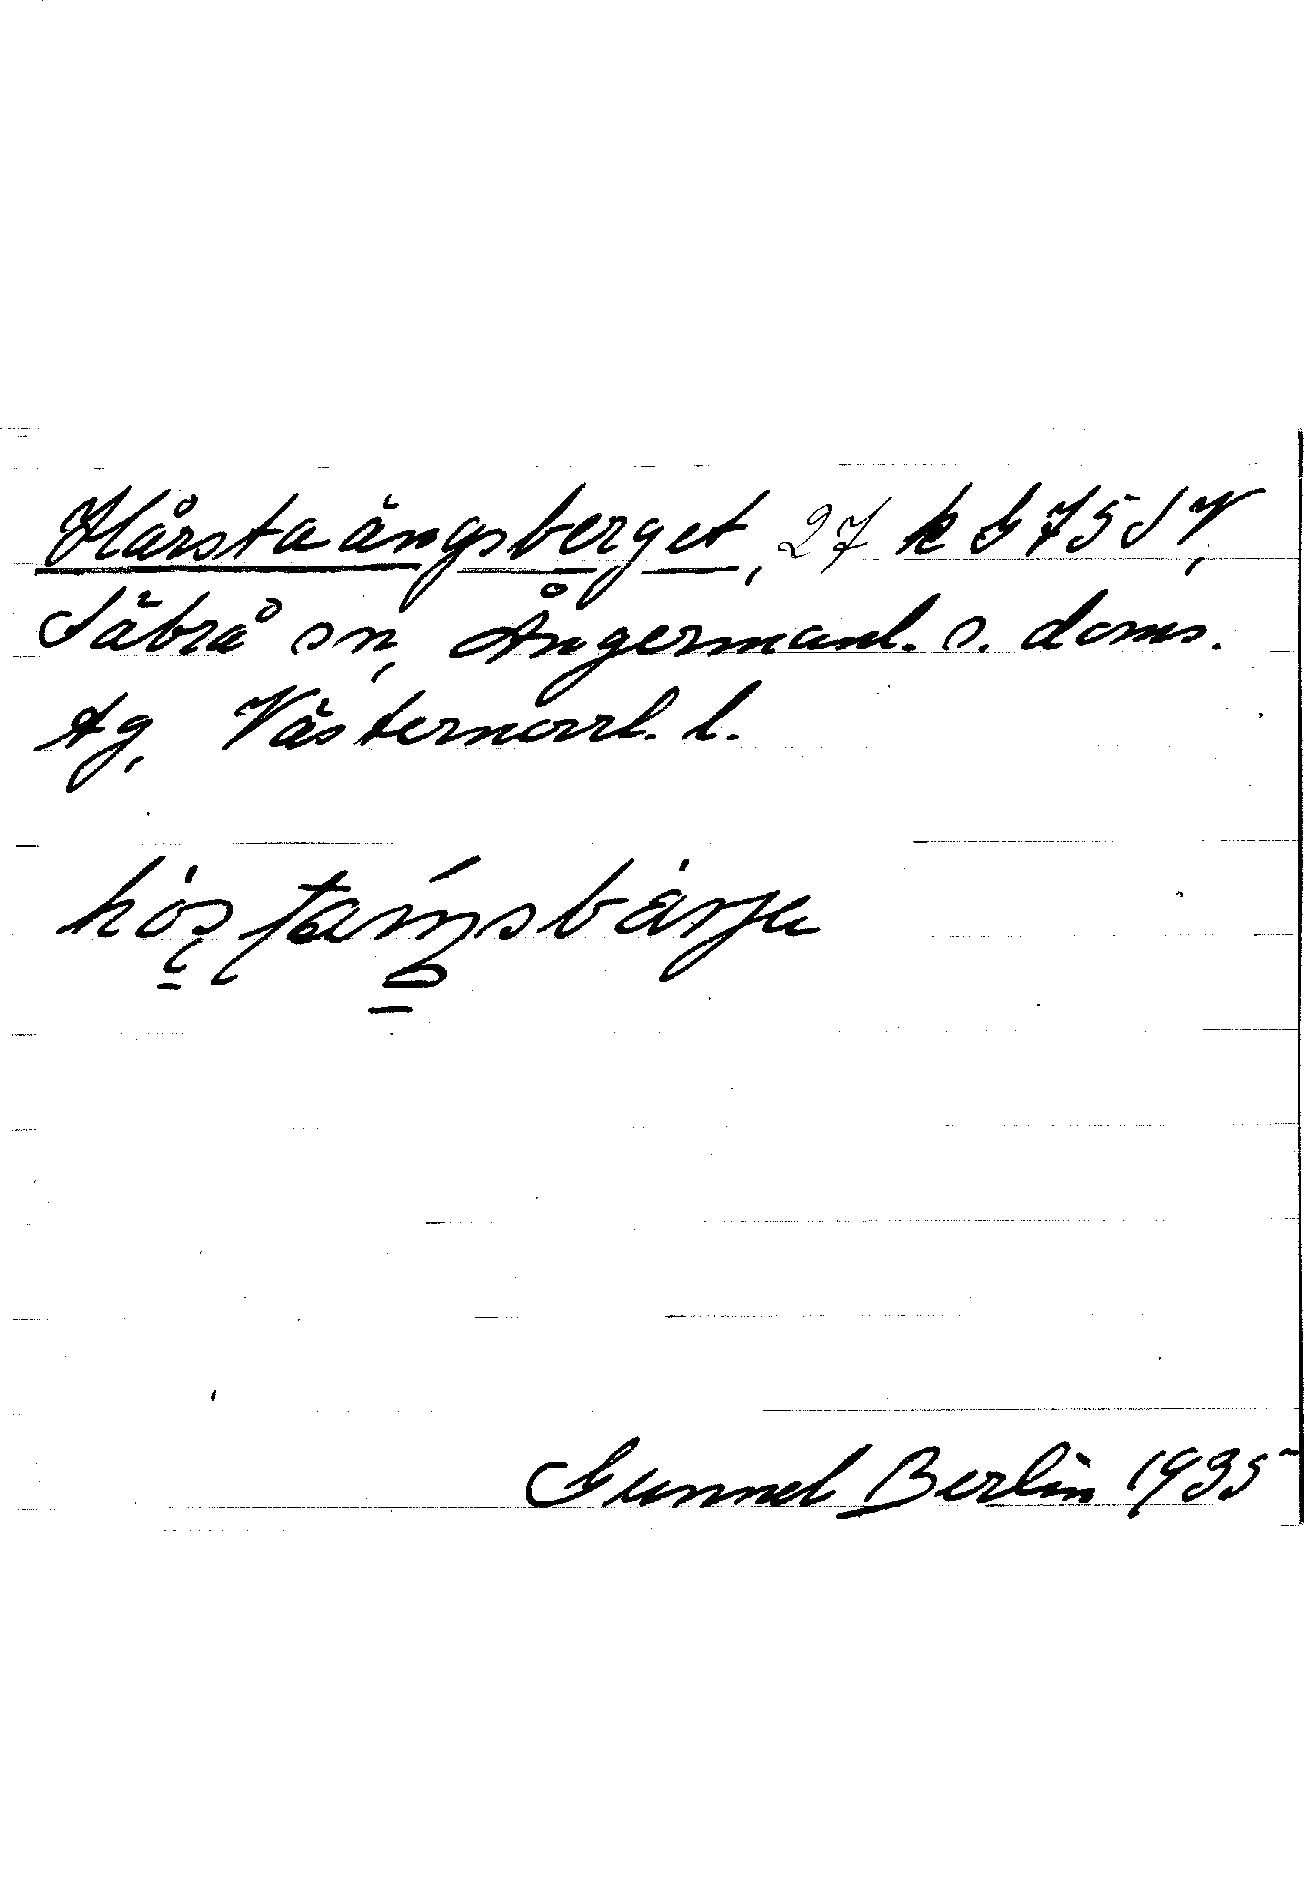 Hårstaängsberget, 27 k G 75 SV,
Säbrå sn, Ångermanl. s. doms.
tg, Västernorrl. l.
Gunnel Berlin 1935